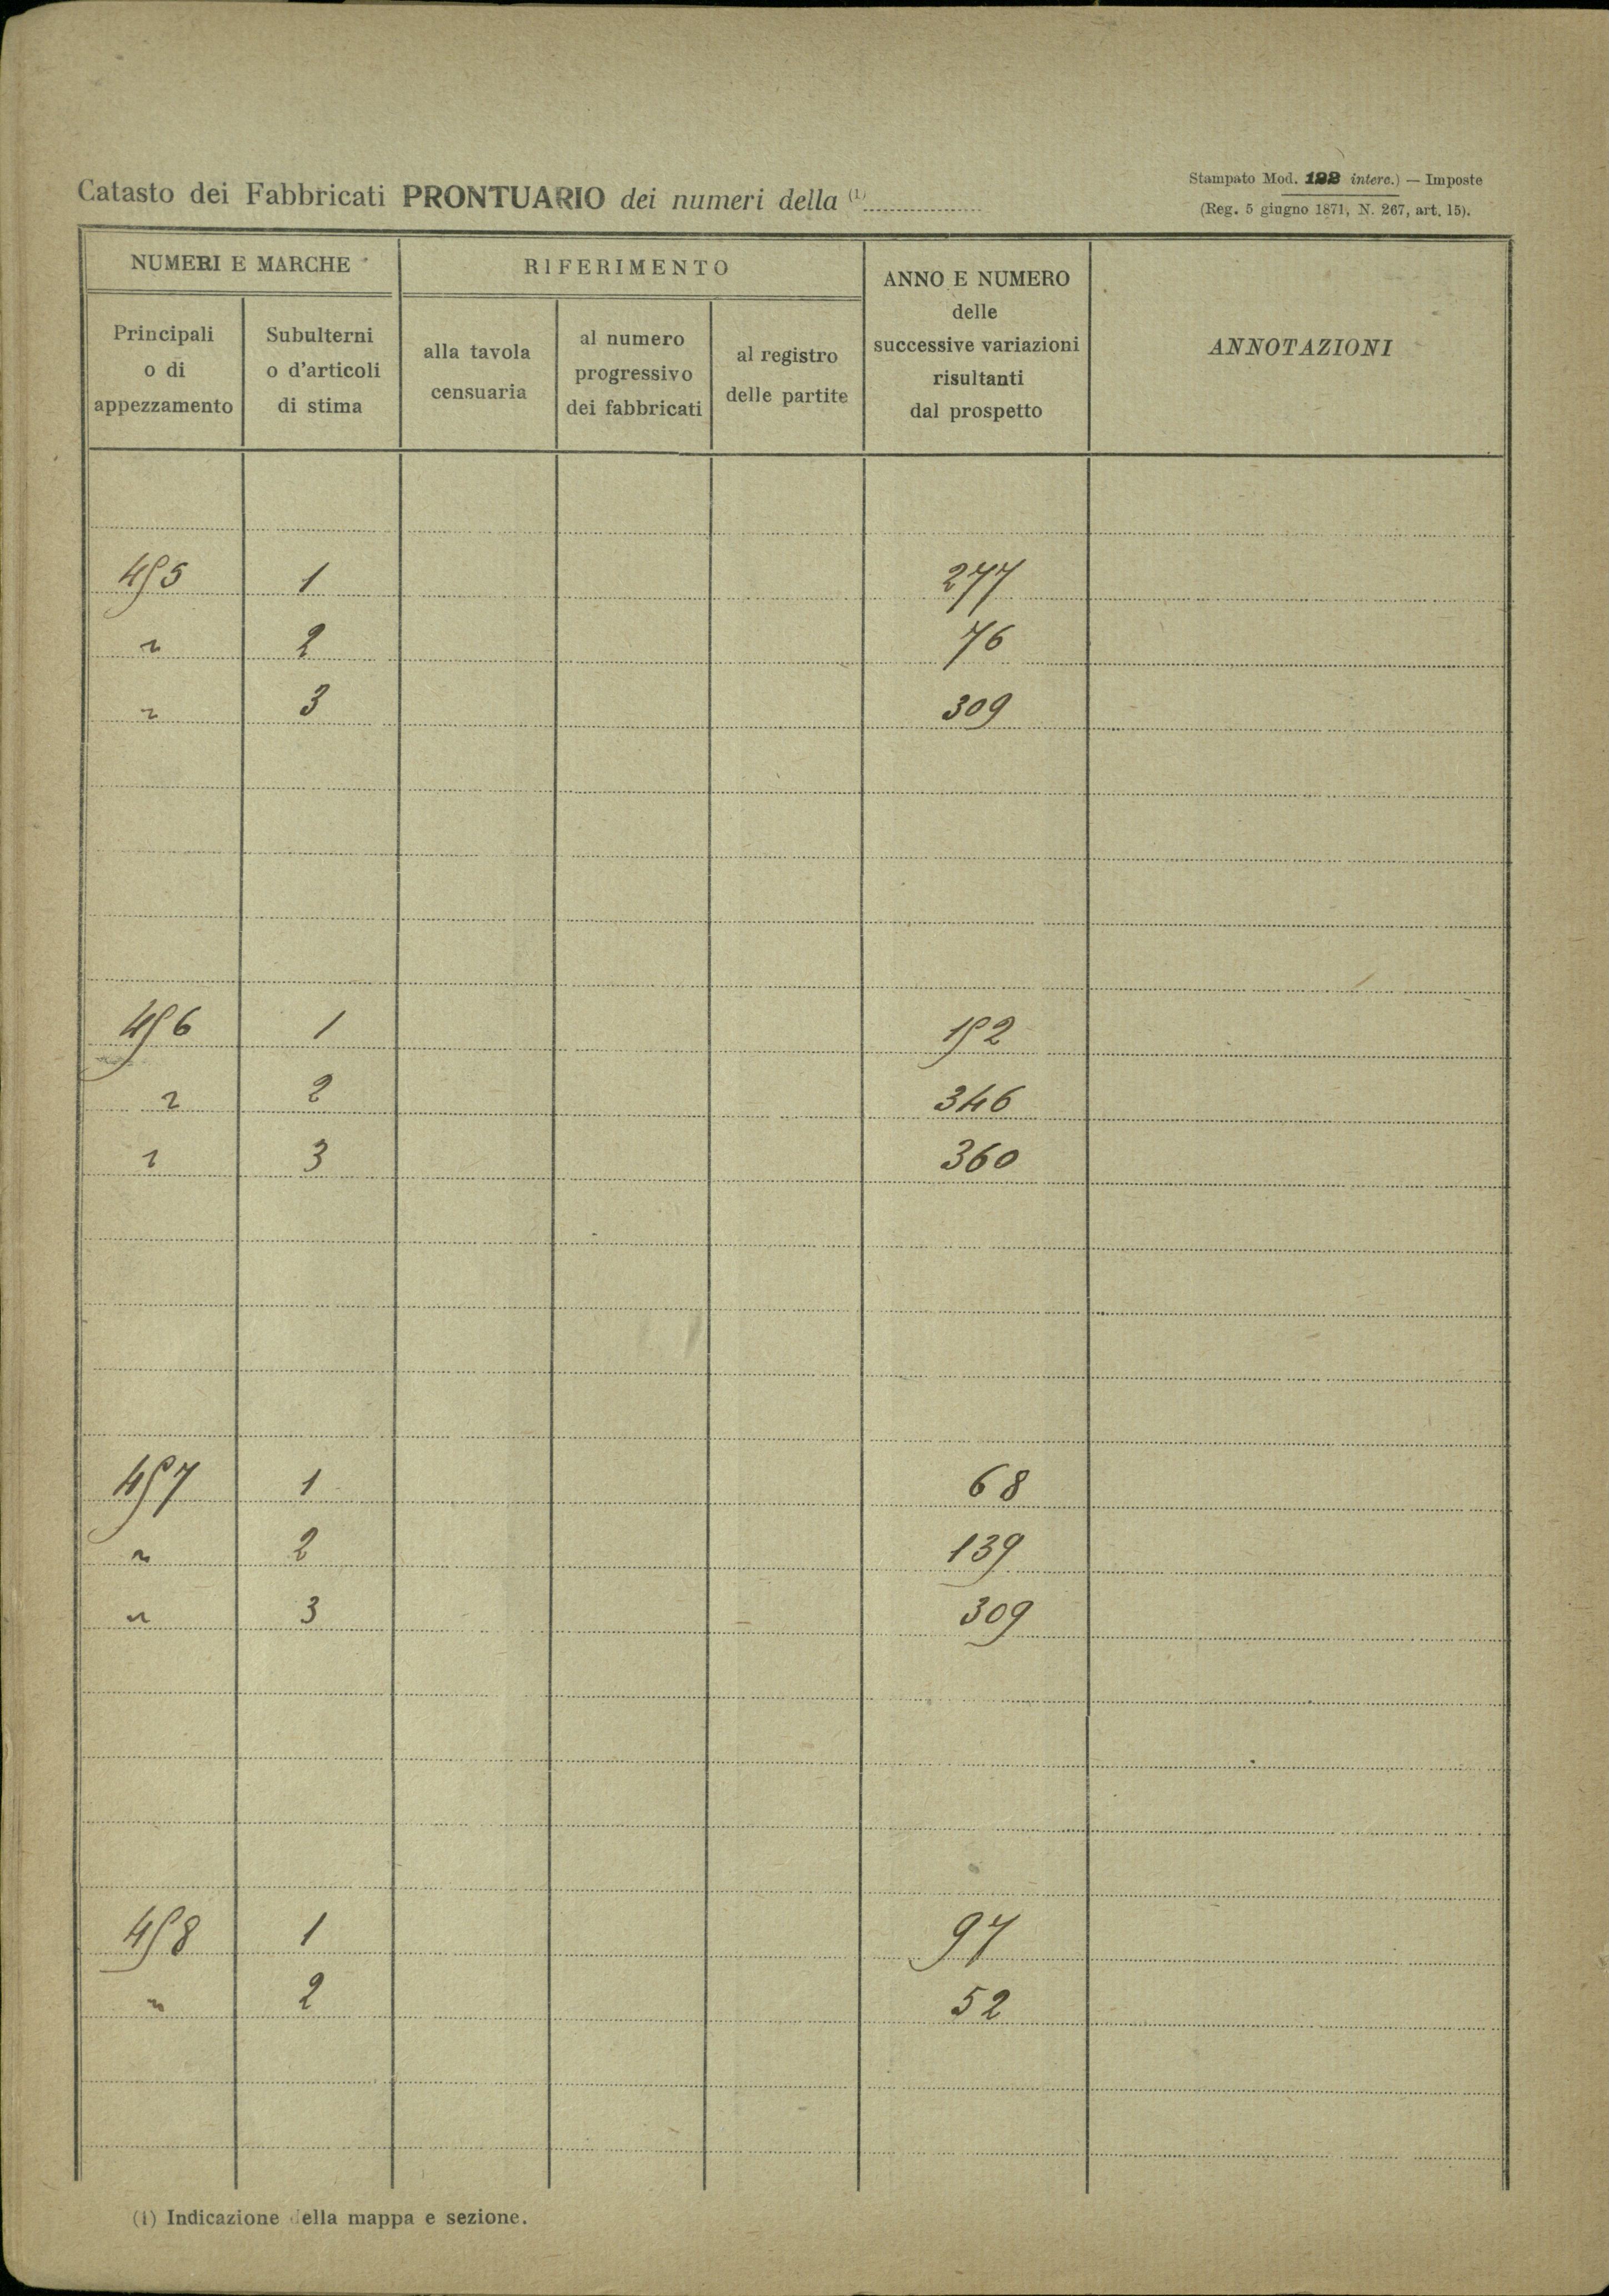 Catasto dei Fabbricati PRONTUARIO dei numeri della (1)
Stampato Mod. 122 interc.) — Imposte
(Reg. 5 giugno 1871, N. 267, art. 15).
NUMERI E MARCHE
RIFERIMENTO
Principali
o di
appezzamento
Subulterni
o d'articoli
di stima
alla tavola
censuaria
al numero
progressivo
dei fabbricati
al registro
delle partite
ANNO E NUMERO
delle
successive variazioni
risultanti
dal prospetto
ANNOTAZIONI
455 1 277
" 2 76
" 3 309
456 1 152
" 2 346
" 3 360
457 1 68
" 2 139
" 3 309
458 1 97
" 2 52
(1) Indicazione della mappa e sezione.